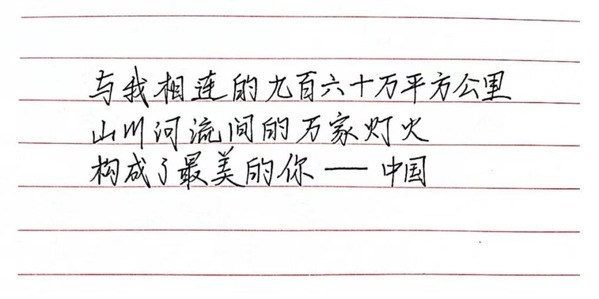 与我相连的九百六十万平方公里
山川河流间的万家灯火
构成了最美的你 — 中国